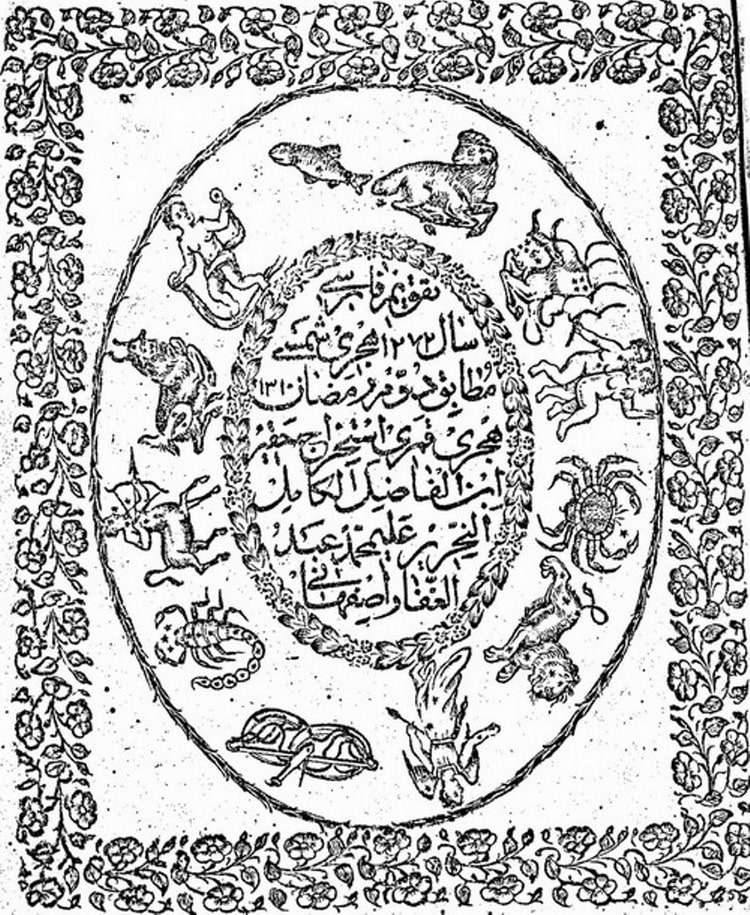 تقویم فارسی
سال ۱۲۷۲ هجری شمسی
مطابق دوم رمضان ۱۳۱۰
هجری قمری استخراج حقیر
ابن الفاضل الکامل
النحریر علیمحمد عبد
الغفار اصفهانی